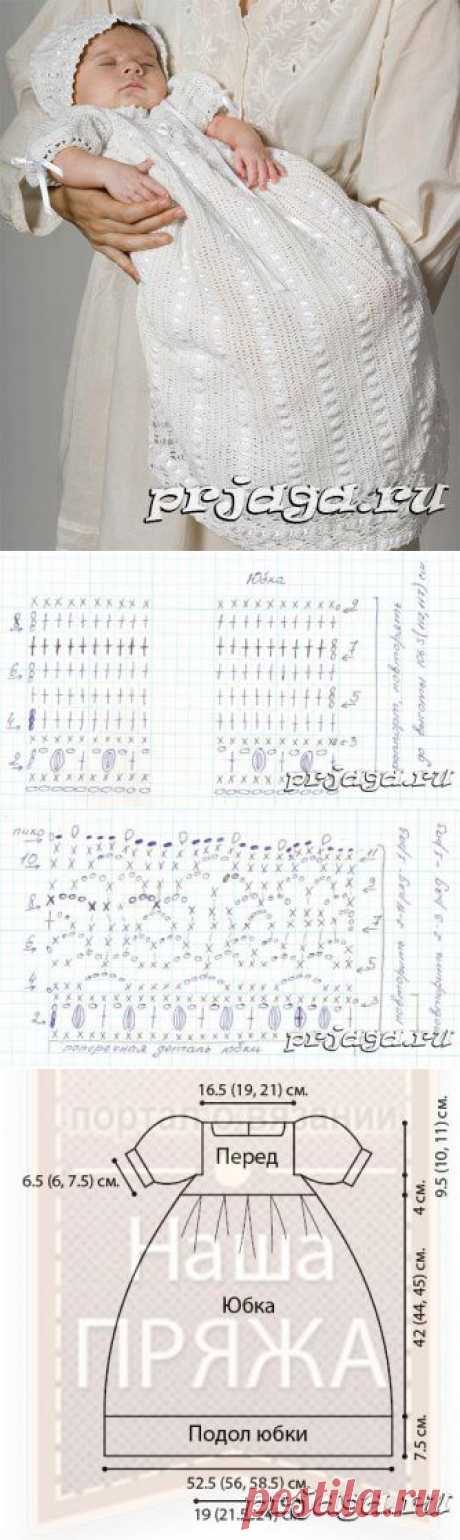 prjaga.ru
Юбка
8
2
7
6
5
4
3
2
повторять
до высоты 106.5 (112, 117) см
prjaga.ru
пико
10
11
8
6
5
4
2
повторить 2-9 ряд 1 раз
поперечная деталь юбки
prjaga.ru
портал о вязании
16.5 (19, 21) см.
9.5 (10, 11) см.
Перед
6.5 (6, 7.5) см.
4 см.
Наша
ПРЯЖА
Юбка
42 (44, 45) см.
Подол юбки
7.5 см.
52.5 (56, 58.5) см.
19 (21.5, 24) см.
postila.ru